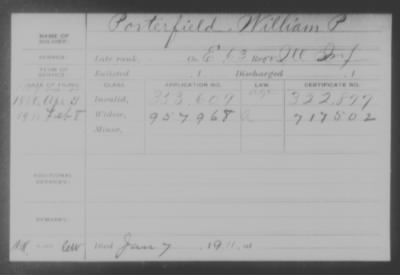 Porterfield, William P
NAME OF SOLDIER:
SERVICE: Late rank, Co. E. 63 Reg't Ill Inf
TERM OF SERVICE: Enlisted , 1 Discharged , 1
DATE OF FILING. CLASS. APPLICATION NO. LAW. CERTIFICATE NO.
1880 Apr 21 Invalid, 353,604 322,877
1911 Feb 8 Widow, 957968 717502
Minor,
ADDITIONAL SERVICES:
REMARKS:
Died Jan 7, 1911, at